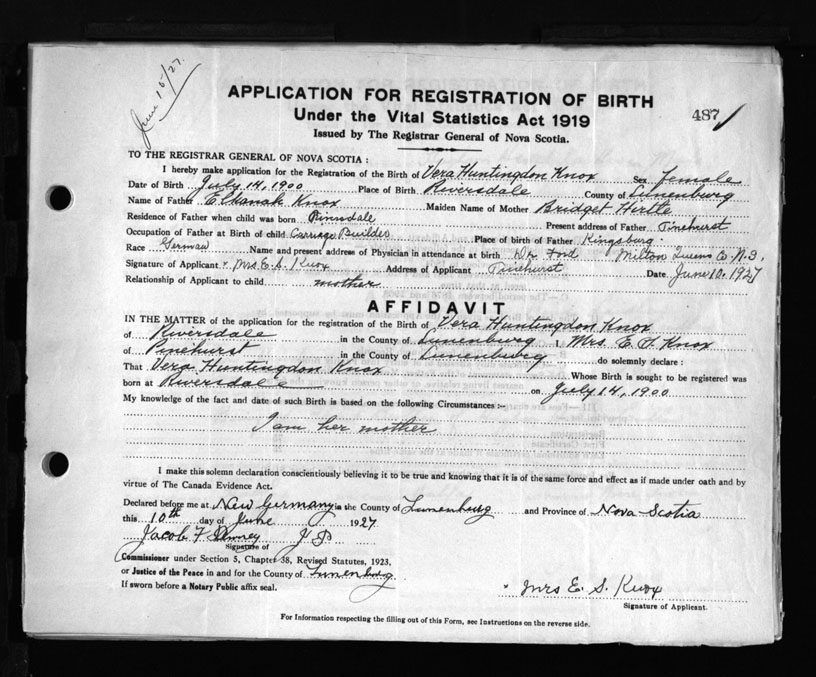 June 15/27.
APPLICATION FOR REGISTRATION OF BIRTH
487
Under the Vital Statistics Act 1919
Issued by The Registrar General of Nova Scotia.
TO THE REGISTRAR GENERAL OF NOVA SCOTIA :
I hereby make application for the Registration of the Birth of Vera Huntingdon Knox Sex Female
Date of Birth July 14, 1900 Place of Birth Riversdale County of Lunenburg
Name of Father Elkanah Knox Maiden Name of Mother Bridget Hertle
Residence of Father when child was born Present address of Father Pinehurst
Occupation of Father at Birth of child Carriage Builder Place of birth of Father Kingsburg.
Race German Name and present address of Physician in attendance at birth Dr Ford Milton Queens Co N.S.
Signature of Applicant Mrs. E. S. Knox Address of Applicant Pinehurst Date June 10. 1927
Relationship of Applicant to child mother
AFFIDAVIT
IN THE MATTER of the application for the registration of the Birth of Vera Huntingdon Knox
of Riversdale in the County of Lunenburg I, Mrs. E. S. Knox
of Pinehurst in the County of Lunenburg do solemnly declare :
That Vera Huntingdon Knox Whose Birth is sought to be registered was
born at Riversdale on July 14, 1900
My knowledge of the fact and date of such Birth is based on the following Circumstances :-
I am her mother
I make this solemn declaration conscientiously believing it to be true and knowing that it is of the same force and effect as if made under oath and by
virtue of The Canada Evidence Act.
Declared before me at New Germany in the County of Lunenburg and Province of Nova Scotia
this 10th day of June 1927
Jacob F J P
Signature of
Commissioner under Section 5, Chapter 38, Revised Statutes, 1923.
or Justice of the Peace in and for the County of Lunenburg
If sworn before a Notary Public affix seal.
Mrs E. S. Knox
Signature of Applicant.
For Information respecting the filling out of this Form, see Instructions on the reverse side.